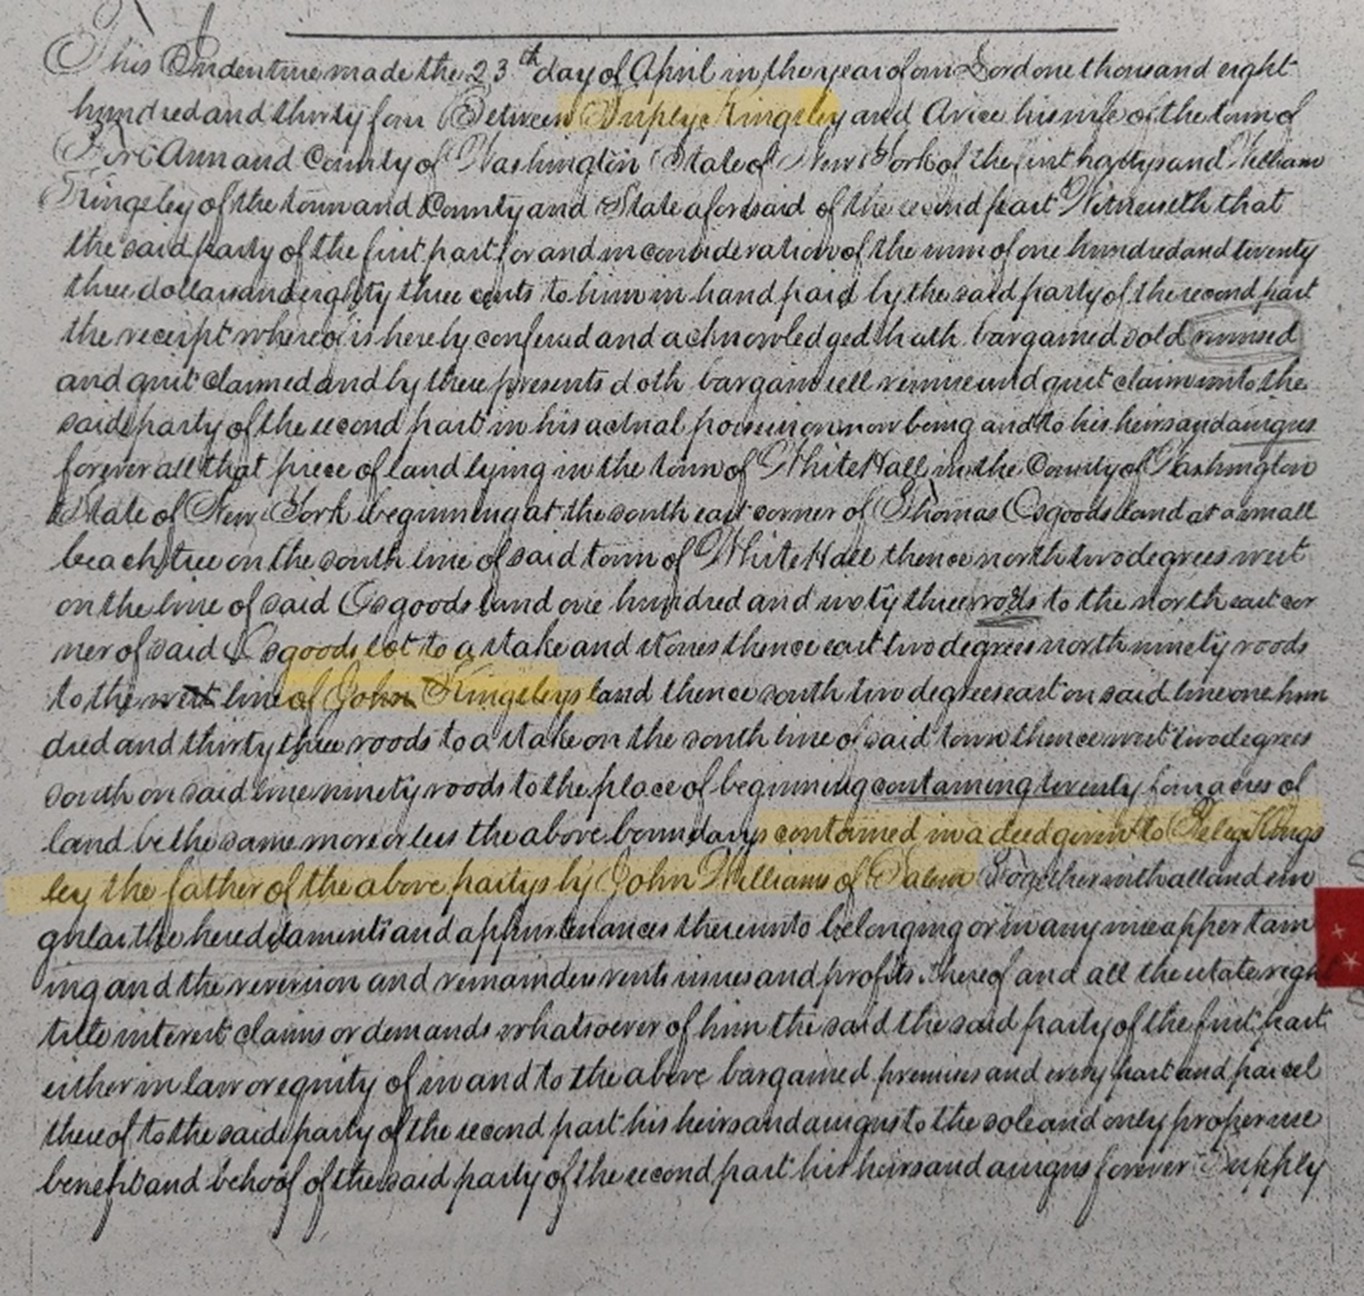 This Indenture made the 23th day of April in the year of our Lord one thousand eight
hundred and thirty four Between Supplye Kingsley and Avice his wife of the town of
Fort Ann and County of Washington State of New York of the first partys and William
Kingsley of the town and County and State aforesaid of the second part Witnesseth that
the said party of the first part for and in consideration of the sum of one hundred and twenty
three dollars and eighty three cents to him in hand paid by the said party of the second part
the receipt whereof is hereby confessed and acknowledged hath bargained sold remised
and quit claimed and by these presents doth bargain sell remise and quit claim unto the
said party of the second part in his actual possession now being and to his heirs and assigns
forever all that piece of land lying in the town of White Hall in the County of Washington
State of New York beginning at the south east corner of Thomas Osgoods land at a small
beach tree on the south line of said town of White Hall thence north two degrees west
on the line of said Osgoods land one hundred and sixty three rods to the north east cor
ner of said Osgoods lot to a stake and stones thence east two degrees north ninety roods
to the west line of John Kingsleys land thence south two degrees east on said line one hun
dred and thirty three roods to a stake on the south line of said town thence west two degrees
south on said line ninety roods to the place of beginning containing twenty four acres of
land be the same more or less the above boundarys contained in a deed given to Peleg Kings
ley the father of the above partys by John Williams of Salem Together with all and sin
gular the hereditaments and appurtenances thereunto belonging or in any wise appertain
ing and the reversion and remainders rents issues and profits thereof and all the estate right
title interest claims or demands whatsoever of him the said the said party of the first part
either in law or equity of in and to the above bargained premises and every part and parcel
thereof to the said party of the second part his heirs and assigns to the sole and only proper use
benefit and behoof of the said party of the second part his heirs and assigns forever Supply